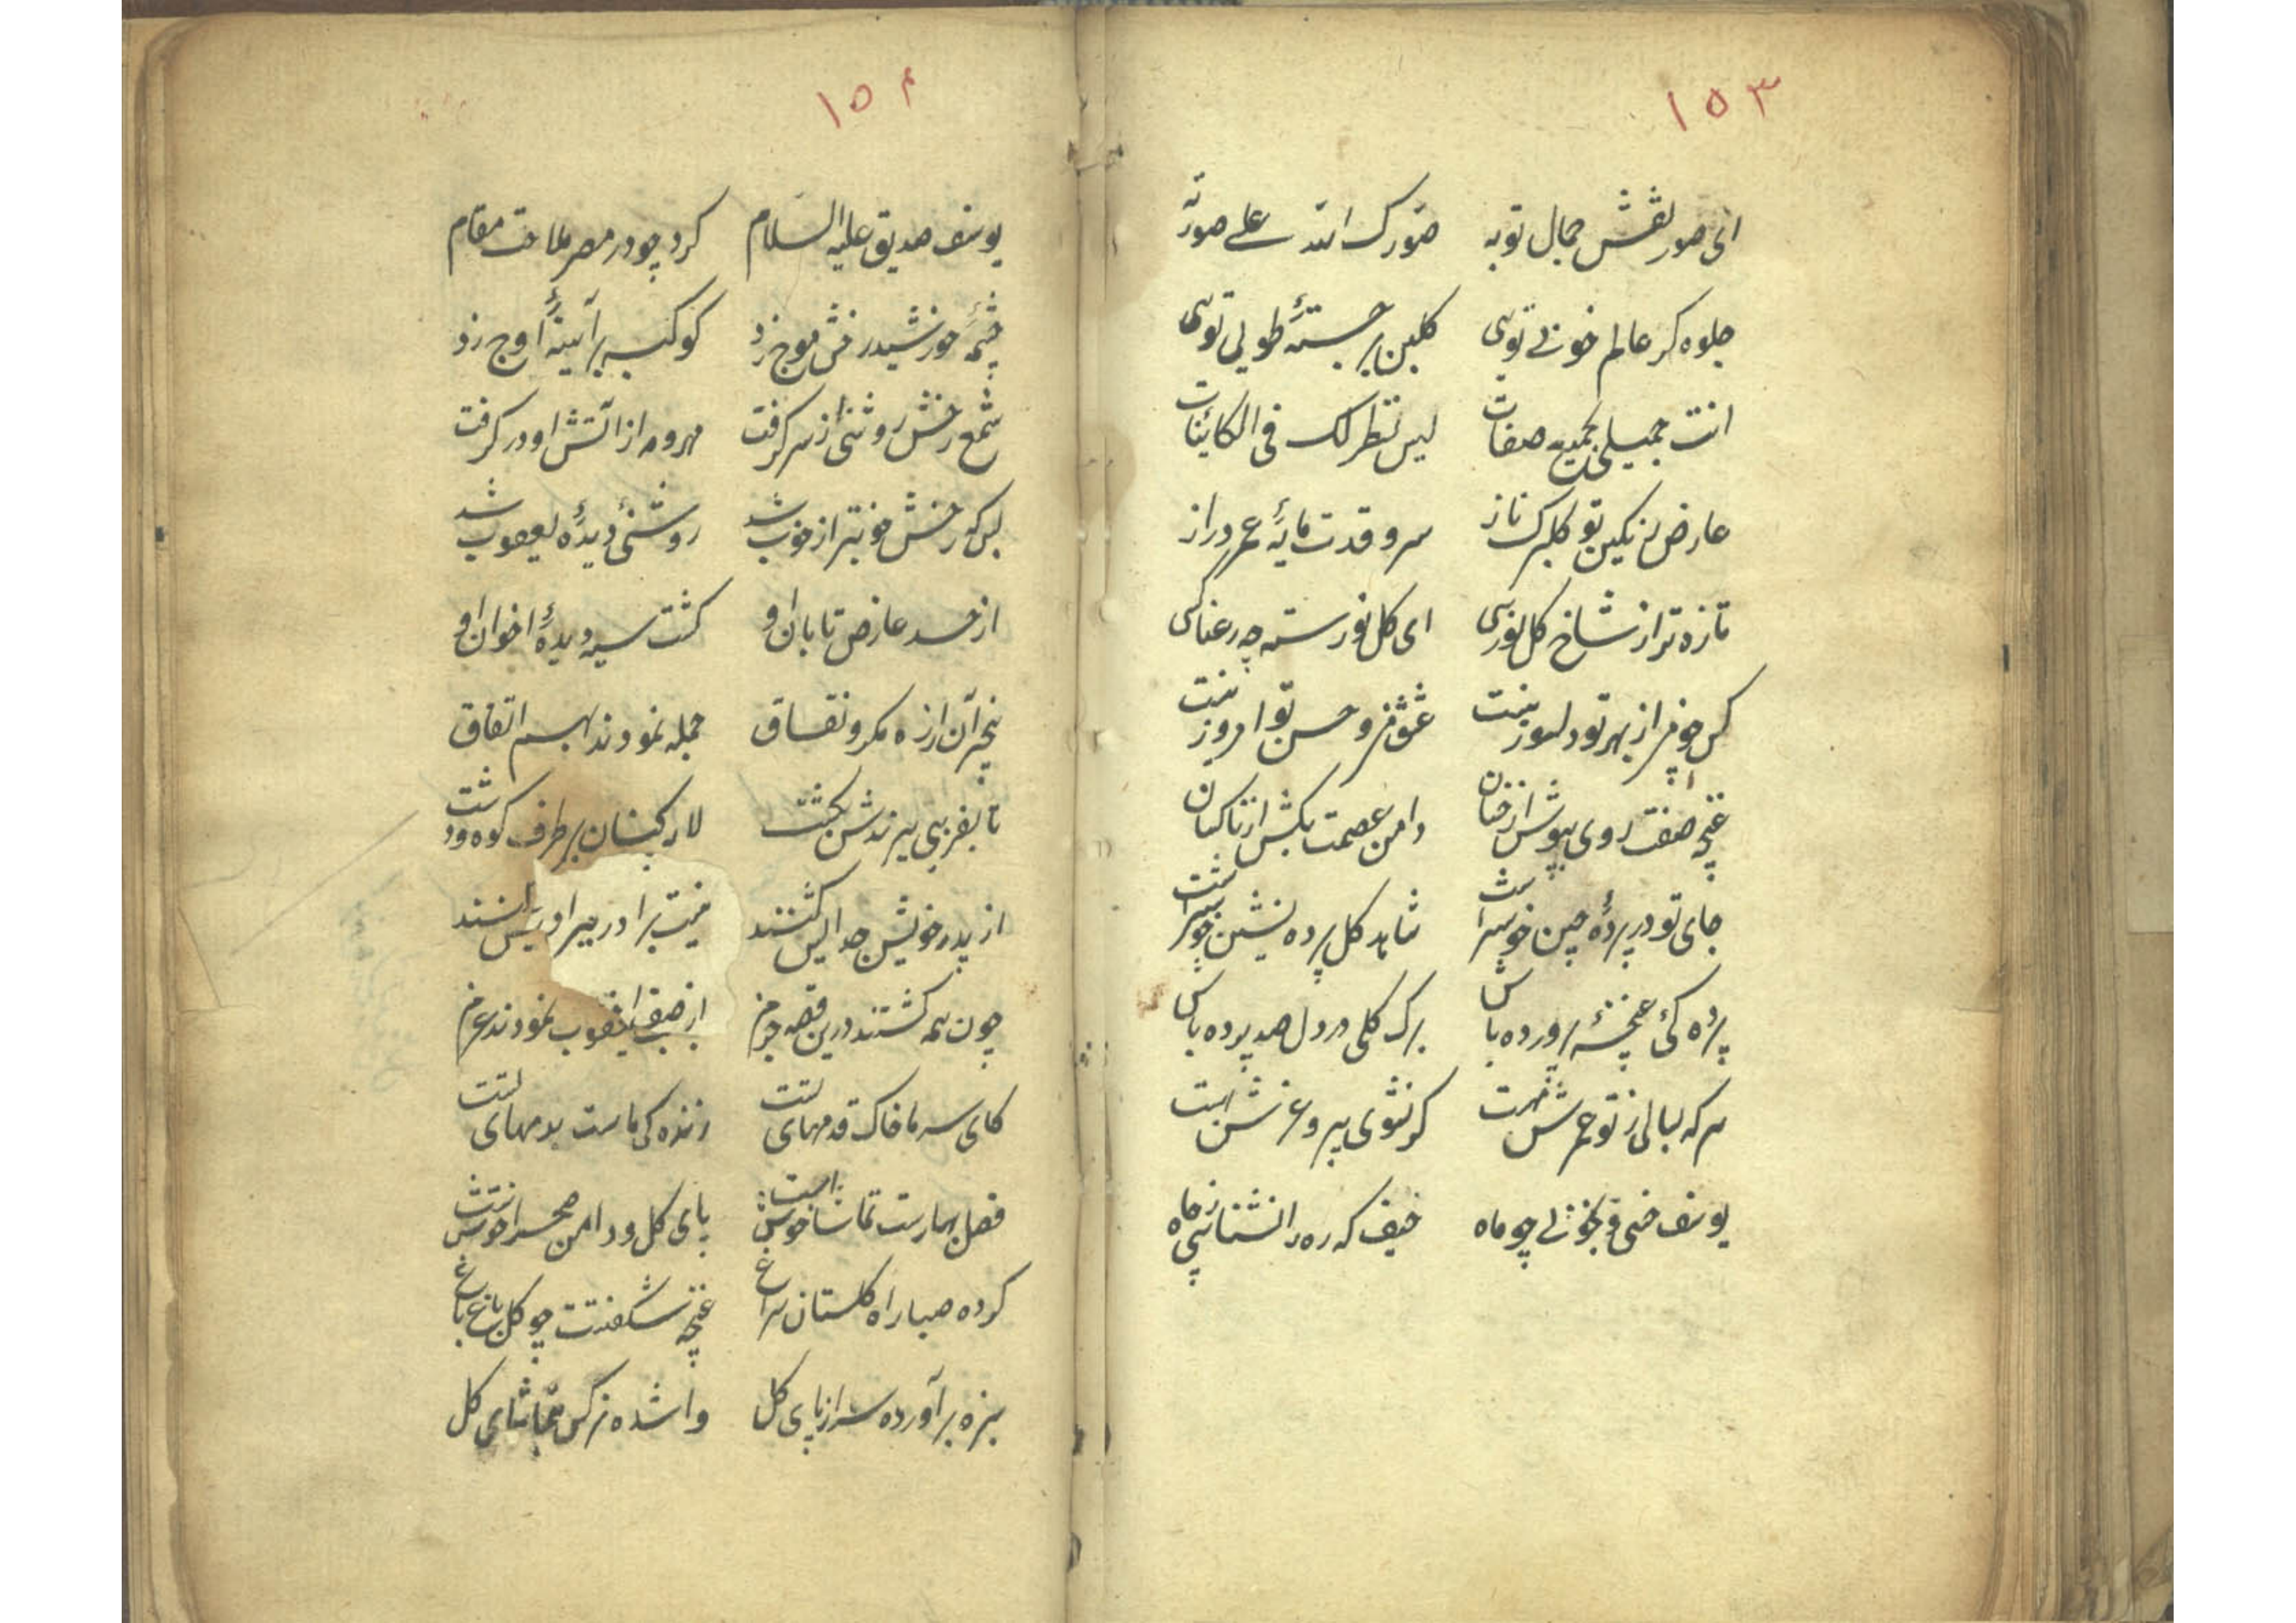 ۱۵۳
ای صور نقش جمال تو به صورک الله علی صورته
جلوه کر عالم خوبی توئی کلبن برجستهٔ طوبی توئی
انت جمیل بجمیع صفات لیس نظیر لک فی الکائنات
عارض رنکین تو کلبرک ناز سرو قدت مایهٔ عمر دراز
تازه تر از شاخ کل نورسی ای کل نورسته چه رعنا کسی
کس چو من از بهر تو دلسوز نیست عشق من و حسن تو امروز نیست
غنچه صفت روی بپوش از خسان دامن عصمت بکش از ناکسان
جای تو در پردهٔ چین خوشتر است شاهد کل پرده نشین خوشتر است
پرده کئ غنچهٔ پرورده باش برک کلی در دل صد پرده باش
هر که لبالی ز تو کر نشوی پیرو
یوسف چو ماه حیف که ره را نشناسی ز چاه
۱۵۴
یوسف صدیق علیه السلام کرد چو در مصر ملاحت مقام
چشمه خورشید رخش موج زد کوکبه بر آینهٔ اوج زد
شمع رخش روشنی از سر کرفت مهر و مه از آتش او در کرفت
بس که رخش خوبتر از خوب شد روشنئ دیدهٔ یعقوب شد
از حسد عارض تابان او کشت سیه دیدهٔ اخوان او
بی خبر آن از ره مکر و نفاق جمله نمودند بهم اتفاق
تا بفریبی ببرندش بکشت لاله کنان بر طرف کوه و دشت
از پدر خویش جدا کنند نیست برادر
چون همه کشتند درین قصه جزم از صف یعقوب نمودند عزم
کای سر ما خاک قدمهای تست زنده کی ماست بدمهای تست
فصل بهارست تماشا خوش است پای کل و دامن صحرا خوش است
کرده صبا راه کلستان سراغ غنچه شکفتست چو کل باغ باغ
سبزه بر آورده سر از پای کل وا شده نرکس بتماشای کل